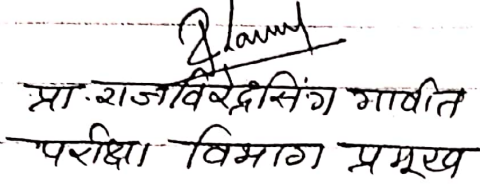 प्रा. राजविरेंद्रसिंग गावीत
परीक्षा विभाग प्रमूख